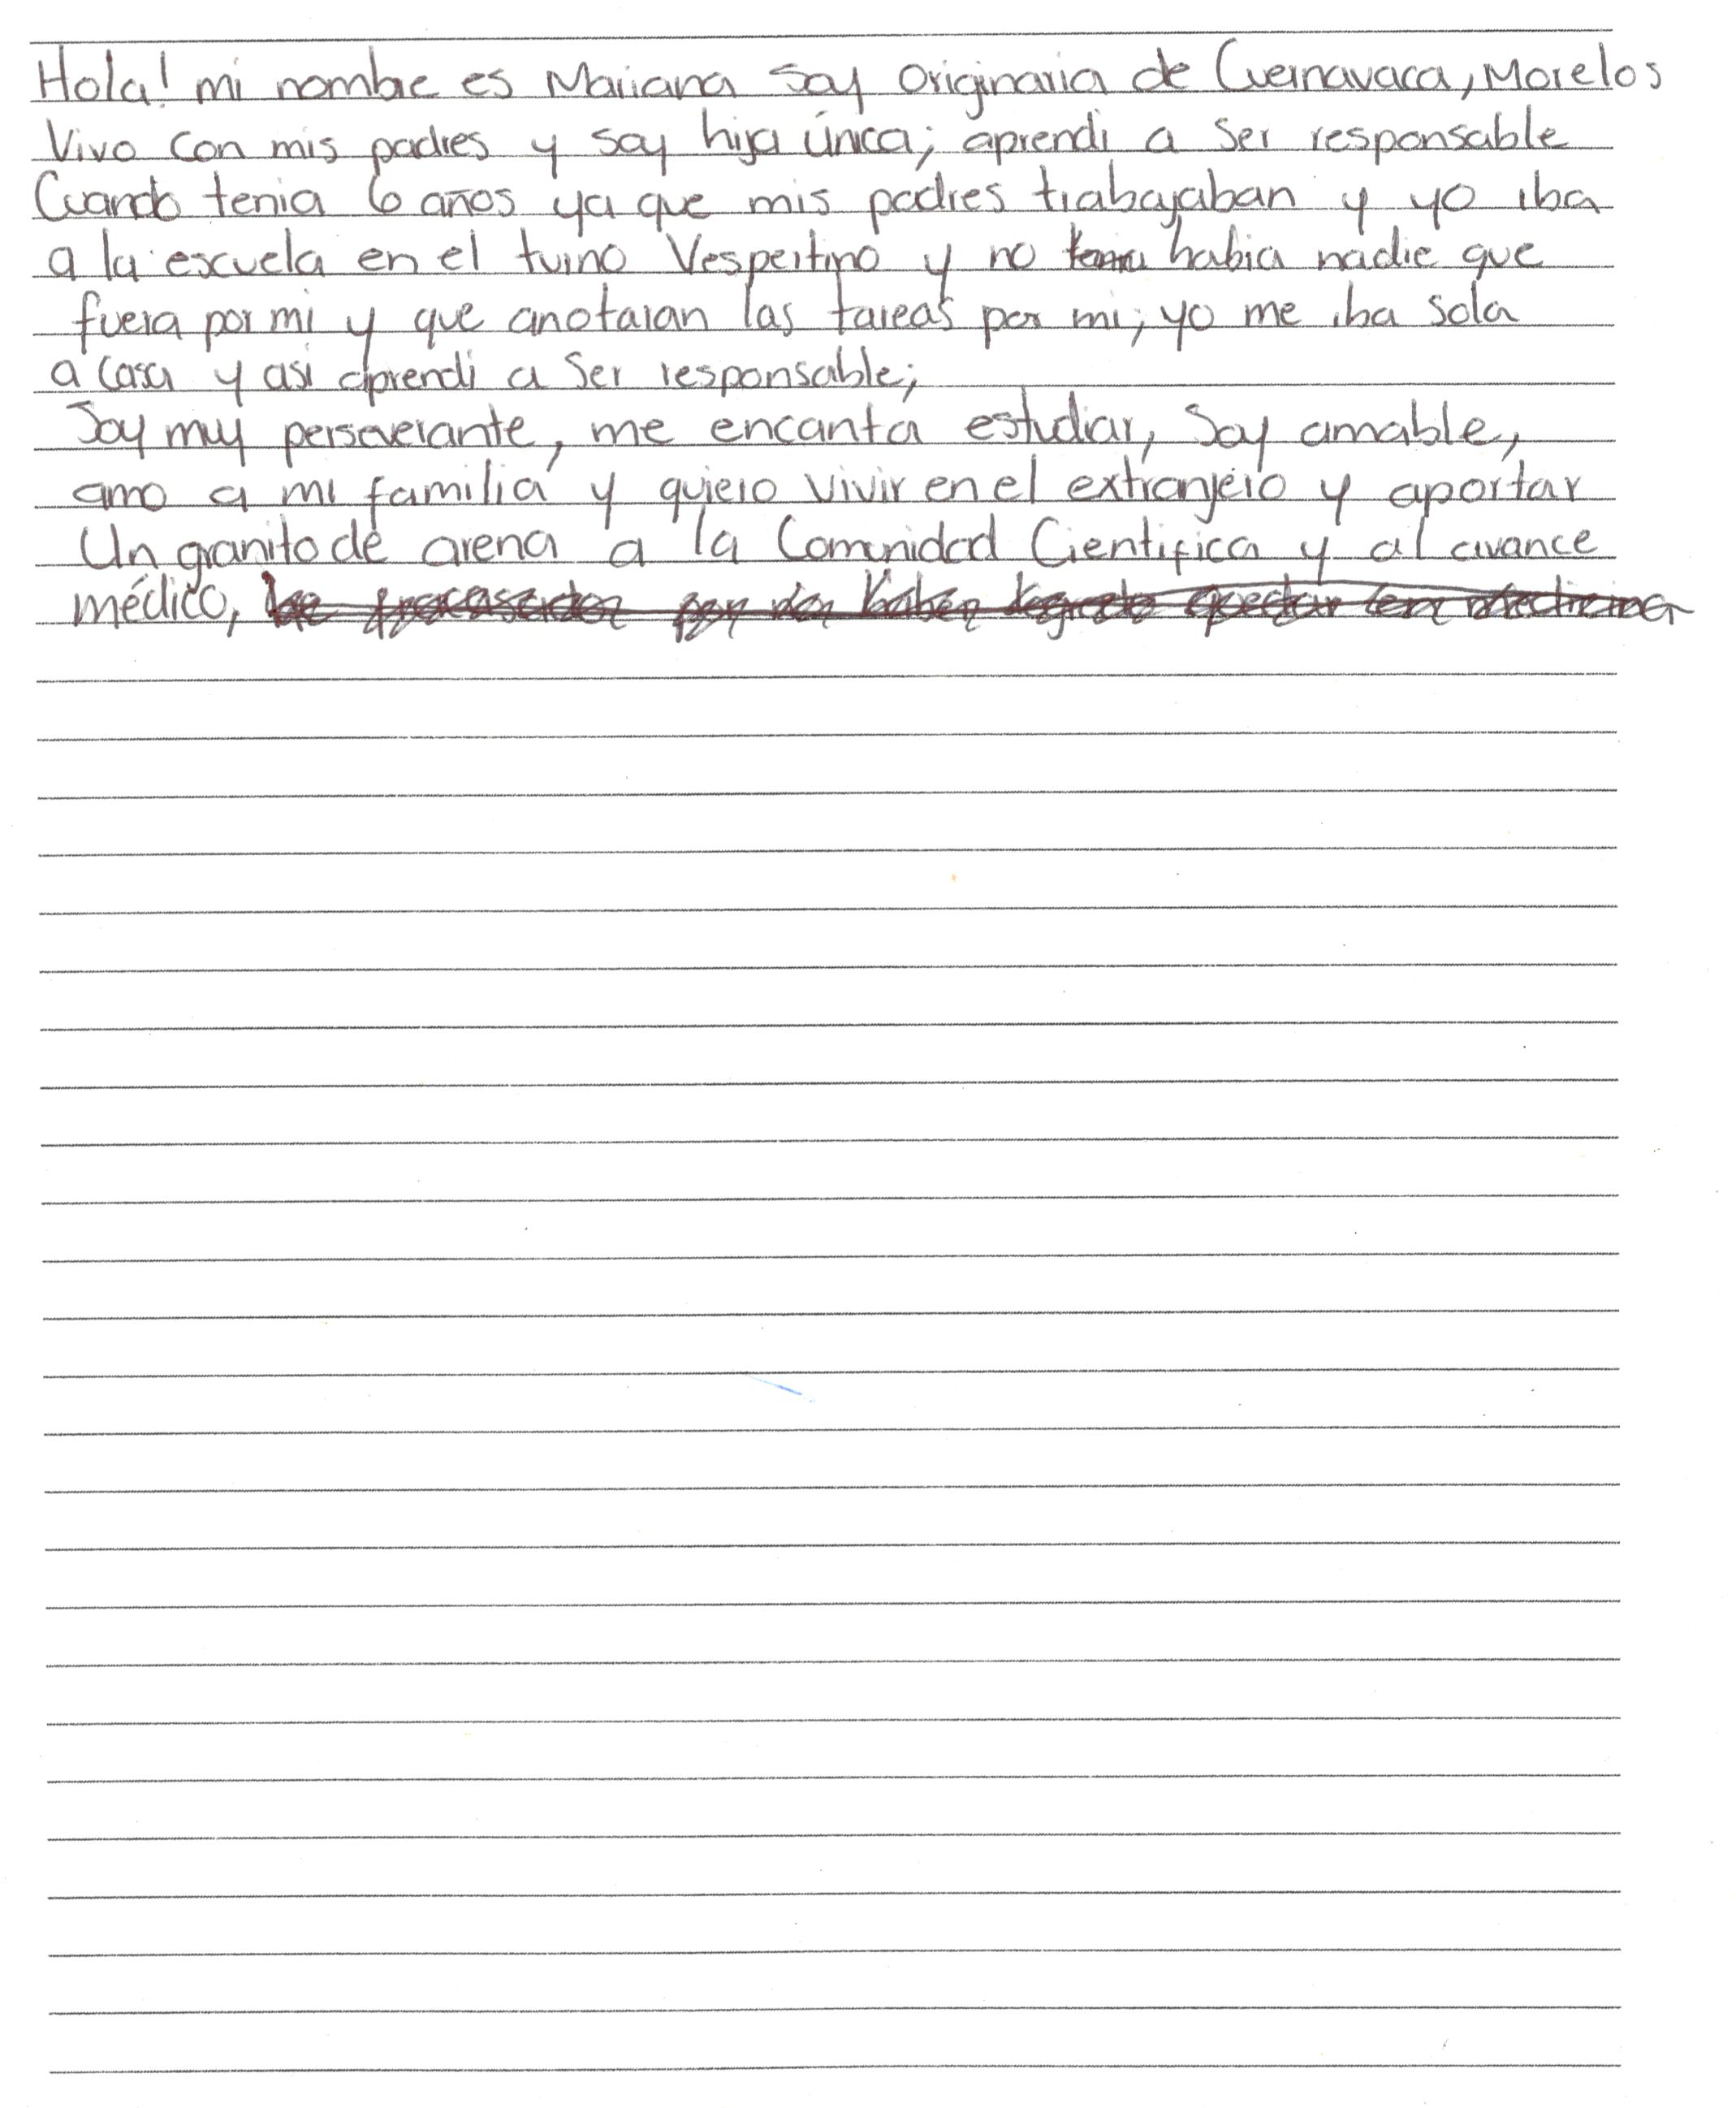 Hola! mi nombre es Mariana Soy Originaria de Cuernavaca, Morelos
Vivo con mis padres y soy hija única; aprendi a ser responsable
Cuando tenia 6 años ya que mis padres trabajaban y yo iba
a la escuela en el turno Vespertino y no tenia habia nadie que
fuera por mi y que anotaran las tareas por mi; yo me iba sola
a casa y asi aprendi a ser responsable;
Soy muy perseverante, me encanta estudiar, Soy amable,
amo a mi familia y quiero vivir en el extranjero y aportar
Un granito de arena a la Comunidad Cientifica y al avance
médico, he fracasado por no haber logrado quedar en medicina